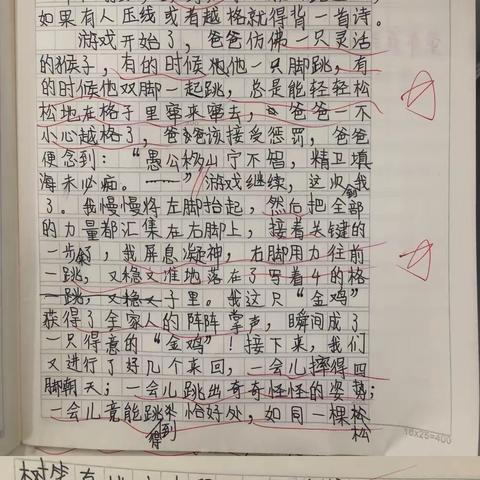 如果有人压线或者越格就得背一首诗。
游戏开始了，爸爸仿佛一只灵活
的猴子，有的时候他一只脚跳，有
的时候他双脚一起跳，总是能轻轻松
松地在格子里窜来窜去，爸爸一不
小心越格了，爸爸该接受惩罚，爸爸
便念到：“愚公移山宁不智，精卫填
海未必痴。——”游戏继续，这次到我
了。我慢慢将左脚抬起，然后把全部
的力量都汇集在右脚上，接着关键的
一步，我屏息凝神，右脚用力往前
一跳，又稳又准地落在了写着4的格
子里。我这只“金鸡”
获得了全家人的阵阵掌声，瞬间成了
一只得意的“金鸡”！接下来，我们
又进行了好几个来回，一会儿摔得四
脚朝天；一会儿跳出奇奇怪怪的姿势；
一会儿竟能跳得恰到好处，如同一棵松
松
16x25=400